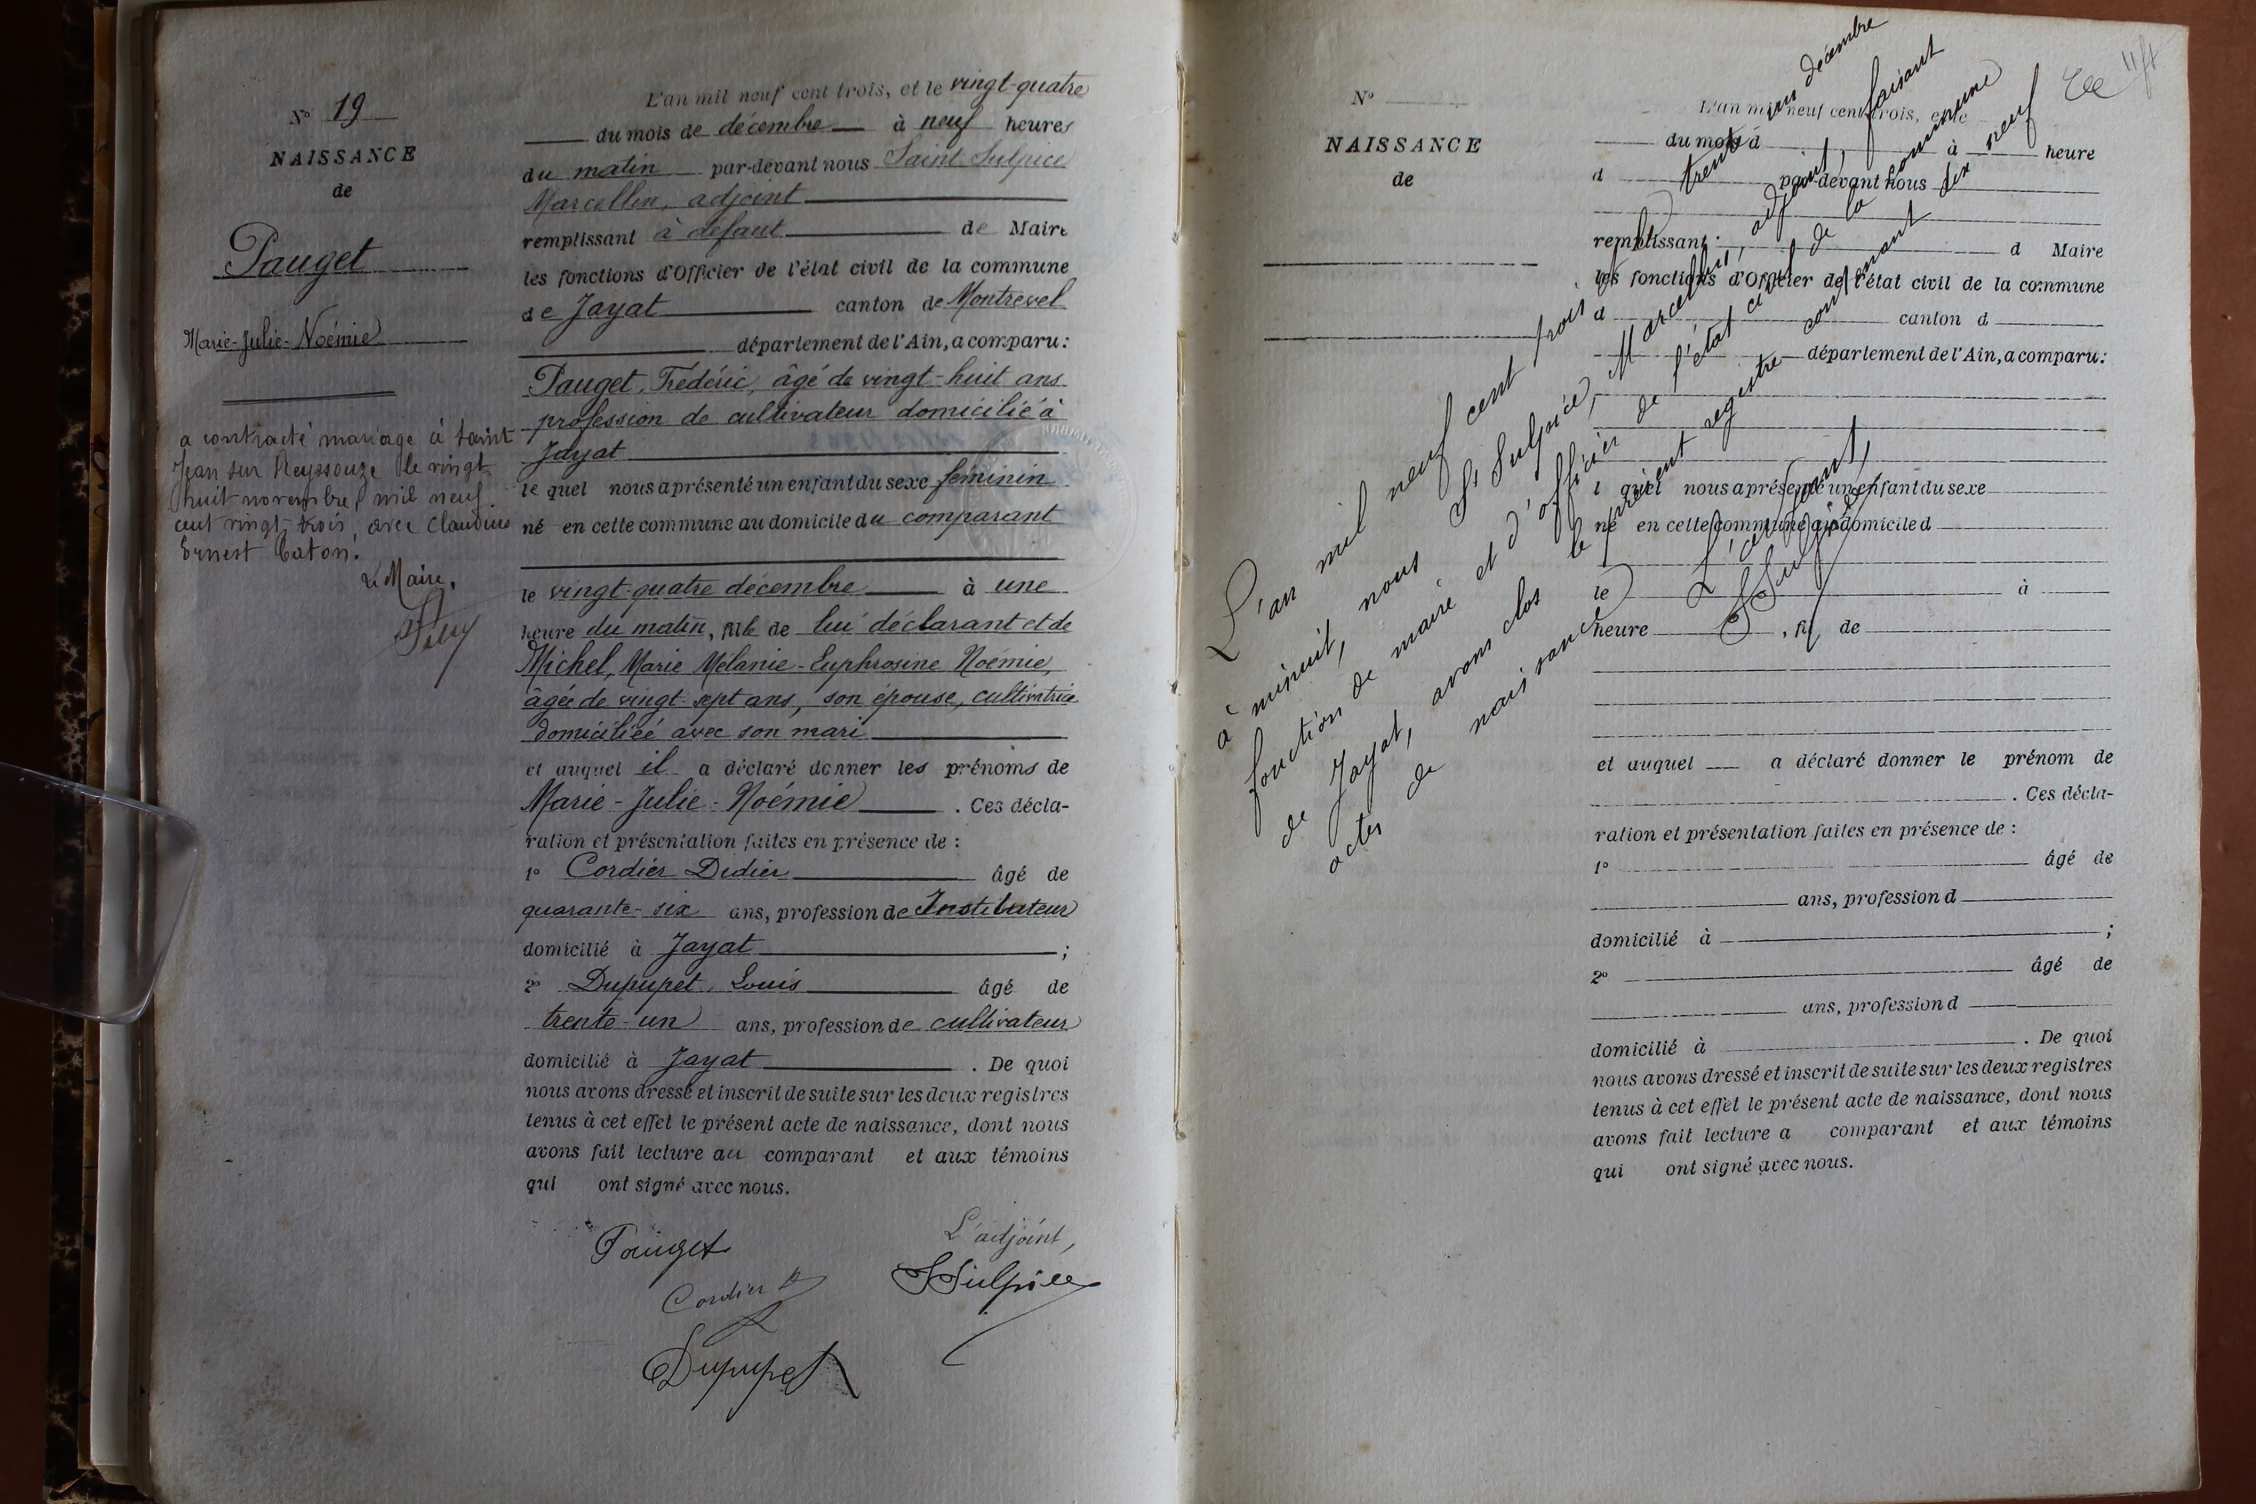 N° 19
NAISSANCE
de
Pauget
Marie-Julie-Noémie
a contracté mariage à Saint
Jean sur Reyssouze le vingt
huit novembre mil neuf
cent vingt-trois, avec Claudius
Ernest Caton.
Le Maire,
L'an mil neuf cent trois, et le vingt-quatre
du mois de décembre à neuf heures
du matin par-devant nous Saint Sulpice
Marcellin, adjoint
remplissant à défaut de Maire
les fonctions d'Officier de l'état civil de la commune
de Jayat canton de Montrevel
département de l'Ain, a comparu :
Pauget, Frédéric, âgé de vingt-huit ans
profession de cultivateur domicilié à
Jayat
le quel nous a présenté un enfant du sexe féminin
né en cette commune au domicile du comparant
le vingt-quatre décembre à une
heure du matin, fille de lui déclarant et de
Michel, Marie Mélanie-Euphrosine Noémie,
âgée de vingt-sept ans, son épouse, cultivatrice
domiciliée avec son mari
et auquel il a déclaré donner les prénoms de
Marie-Julie-Noémie. Ces décla-
ration et présentation faites en présence de :
1° Cordier Didier âgé de
quarante-six ans, profession de Instituteur
domicilié à Jayat ;
2° Dupupet, Louis âgé de
trente-un ans, profession de cultivateur
domicilié à Jayat. De quoi
nous avons dressé et inscrit de suite sur les deux registres
tenus à cet effet le présent acte de naissance, dont nous
avons fait lecture au comparant et aux témoins
qui ont signé avec nous.
Pauget
L'adjoint,
Cordier D
SSulpice
Dupupet
N°
NAISSANCE
de
L'an mil neuf cent trois, et le
du mois d à heure
d par-devant nous
remplissant d Maire
les fonctions d'Officier de l'état civil de la commune
d canton d
département de l'Ain, a comparu :
l quel nous a présenté un enfant du sexe
né en cette commune au domicile d
le à
heure , fi de
et auquel a déclaré donner le prénom de
. Ces décla-
ration et présentation faites en présence de :
1° âgé de
ans, profession d
domicilié à ;
2° âgé de
ans, profession d
domicilié à . De quoi
nous avons dressé et inscrit de suite sur les deux registres
tenus à cet effet le présent acte de naissance, dont nous
avons fait lecture a comparant et aux témoins
qui ont signé avec nous.
L'an mil neuf cent trois et le trente un décembre
à minuit, nous St Sulpice, Marcellin, adjoint, faisant
fonction de maire et d'officier de l'état civil de la commune
de Jayat, avons clos le présent registre contenant dix neuf
actes de naissance
L'adjoint,
SSulpice